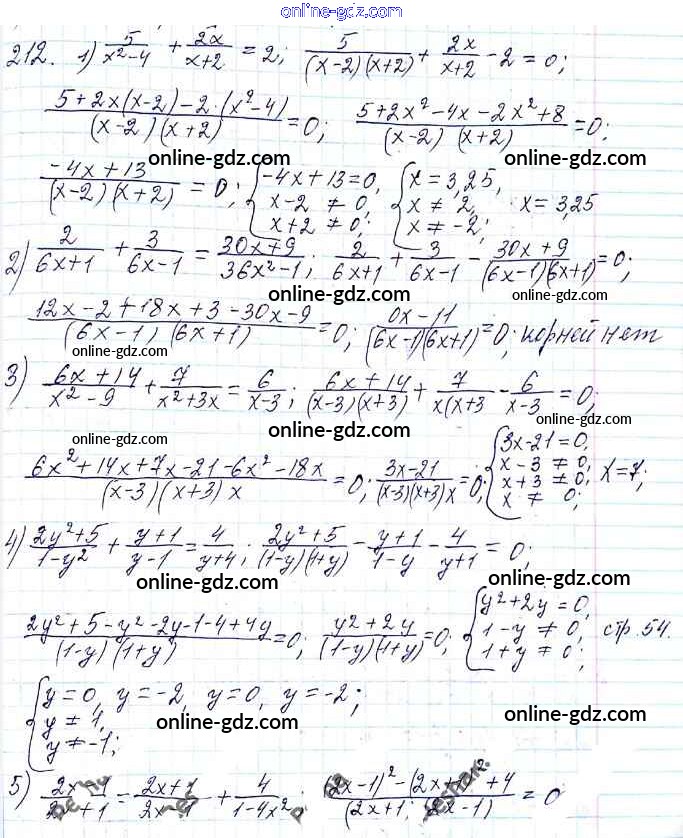 online-gdz.com
212. 1) 5/(x²-4) + 2x/(x+2) = 2; 5/((x-2)(x+2)) + 2x/(x+2) - 2 = 0;
(5+2x(x-2)-2·(x²-4))/((x-2)(x+2)) = 0; (5+2x²-4x-2x²+8)/((x-2)(x+2)) = 0;
online-gdz.com online-gdz.com
(-4x+13)/((x-2)(x+2)) = 0; { -4x+13=0, x-2≠0, x+2≠0; { x=3,25, x≠2, x≠-2; x=3,25
online-gdz.com online-gdz.com
2) 2/(6x+1) + 3/(6x-1) = (30x+9)/(36x²-1); 2/(6x+1) + 3/(6x-1) - (30x+9)/((6x-1)(6x+1)) = 0;
online-gdz.com online-gdz.com
(12x-2+18x+3-30x-9)/((6x-1)(6x+1)) = 0; (0x-11)/((6x-1)(6x+1)) = 0; корней нет
online-gdz.com online-gdz.com
3) (6x+14)/(x²-9) + 7/(x²+3x) = 6/(x-3); (6x+14)/((x-3)(x+3)) + 7/(x(x+3 - 6/(x-3) = 0;
online-gdz.com online-gdz.com
online-gdz.com
(6x²+14x+7x-21-6x²-18x)/((x-3)(x+3)x) = 0; (3x-21)/((x-3)(x+3)x) = 0; { 3x-21=0, x-3≠0, x+3≠0, x≠0; x=7;
online-gdz.com online-gdz.com
4) (2y²+5)/(1-y²) + (y+1)/(y-1) = 4/(y+4; (2y²+5)/((1-y)(1+y)) - (y+1)/(1-y) - 4/(y+1) = 0;
online-gdz.com online-gdz.com
(2y²+5-y²-2y-1-4+4y)/((1-y)(1+y)) = 0; (y²+2y)/((1-y)(1+y)) = 0; { y²+2y=0, 1-y≠0, 1+y≠0; стр. 54.
online-gdz.com online-gdz.com
{ y=0, y=-2, y≠1, y≠-1; y=0, y=-2;
online-gdz.com online-gdz.com
5) = (2x+1)/ + 4/(1-4x²) = 0